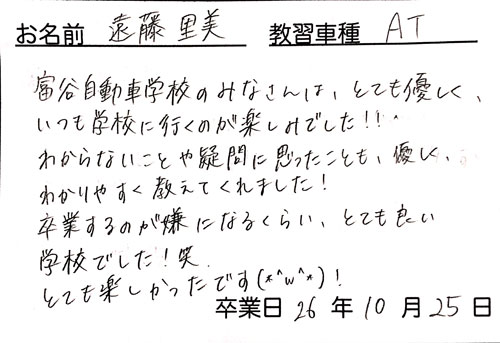 お名前 遠藤里美 教習車種 AT
富谷自動車学校のみなさんは、とても優しく、
いつも学校に行くのが楽しみでした!!
わからないことや疑問に思ったことも、優しく、
わかりやすく教えてくれました!
卒業するのが嫌になるくらい、とても良い
学校でした!笑
とても楽しかったです(*^w^*)!
卒業日 26 年 10 月 25 日